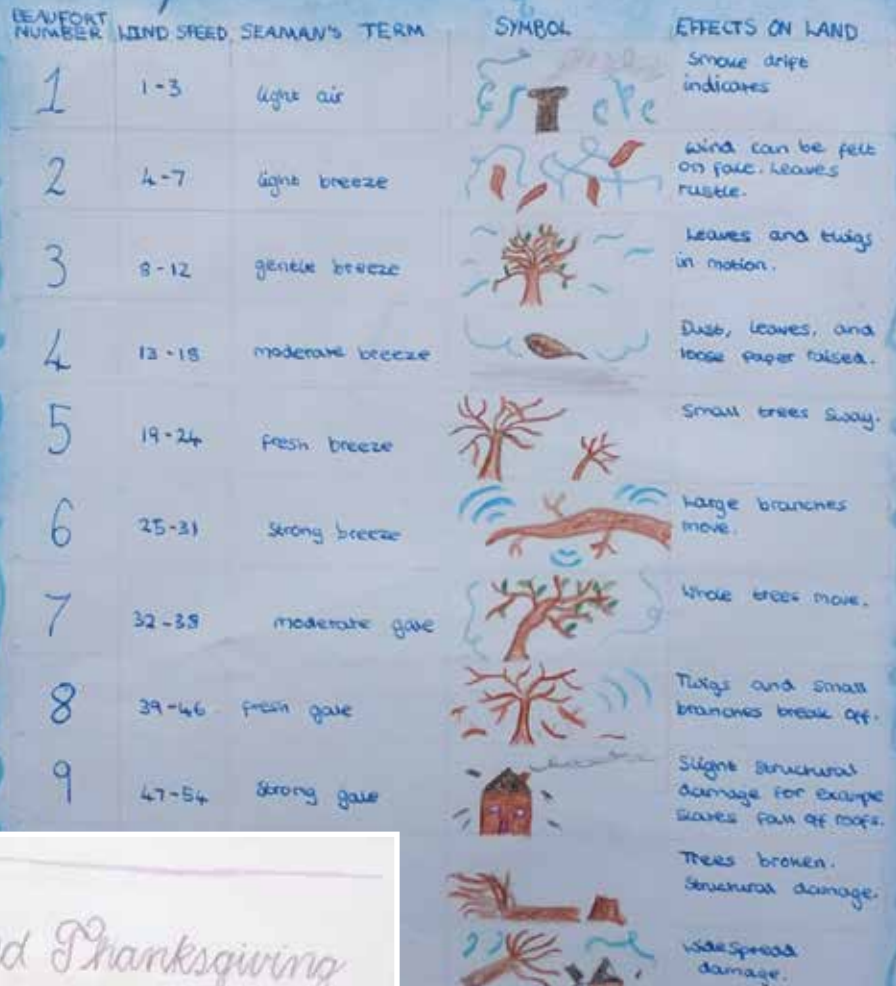 BEAUFORT NUMBER WIND SPEED SEAMAN'S TERM SYMBOL EFFECTS ON LAND
1 1-3 light air Smoke drift
indicates
2 4-7 light breeze wind can be felt
on face. Leaves
rustle.
3 8-12 gentle breeze Leaves and twigs
in motion.
4 13-18 moderate breeze Dust, leaves, and
loose paper raised.
5 19-24 fresh breeze Small trees sway.
6 25-31 strong breeze Large branches
move.
7 32-38 moderate gale Whole trees move.
8 39-46 fresh gale Twigs and small
branches break off.
9 47-54 strong gale Slight structural
damage for example
slates fall off roofs.
Trees broken.
Structural damage.
Widespread
damage.
Thanksgiving